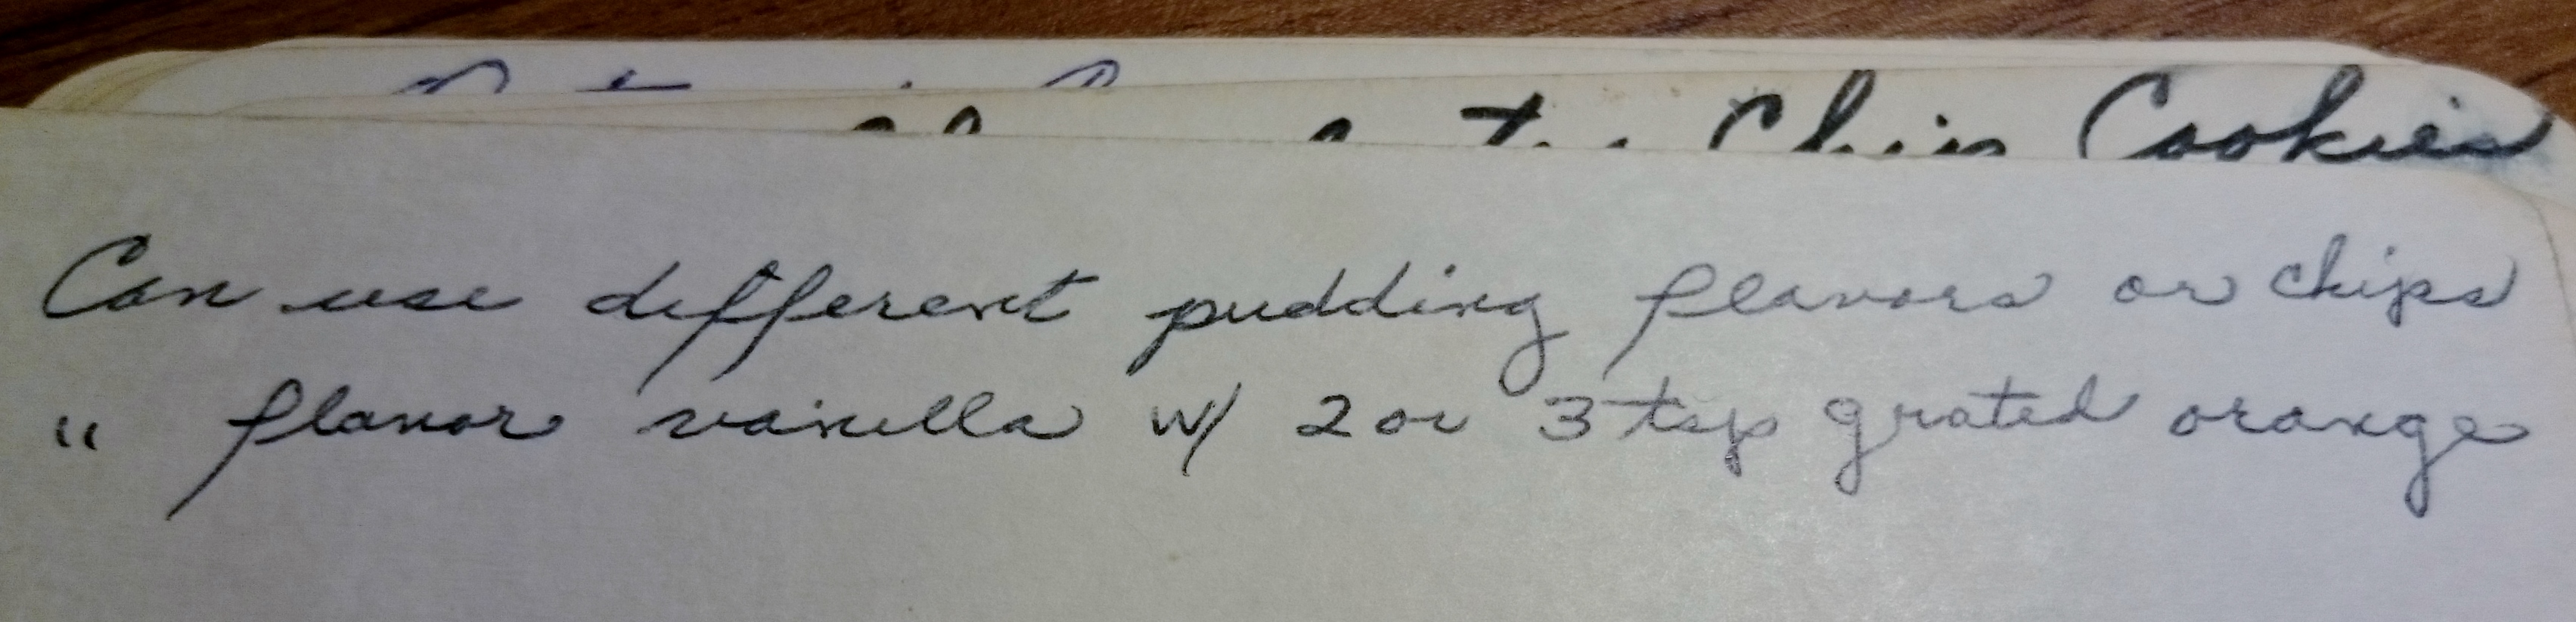 Chip Cookies
Can use different pudding flavors or chips
" flavor vanilla w/ 2 or 3 tsp grated orange